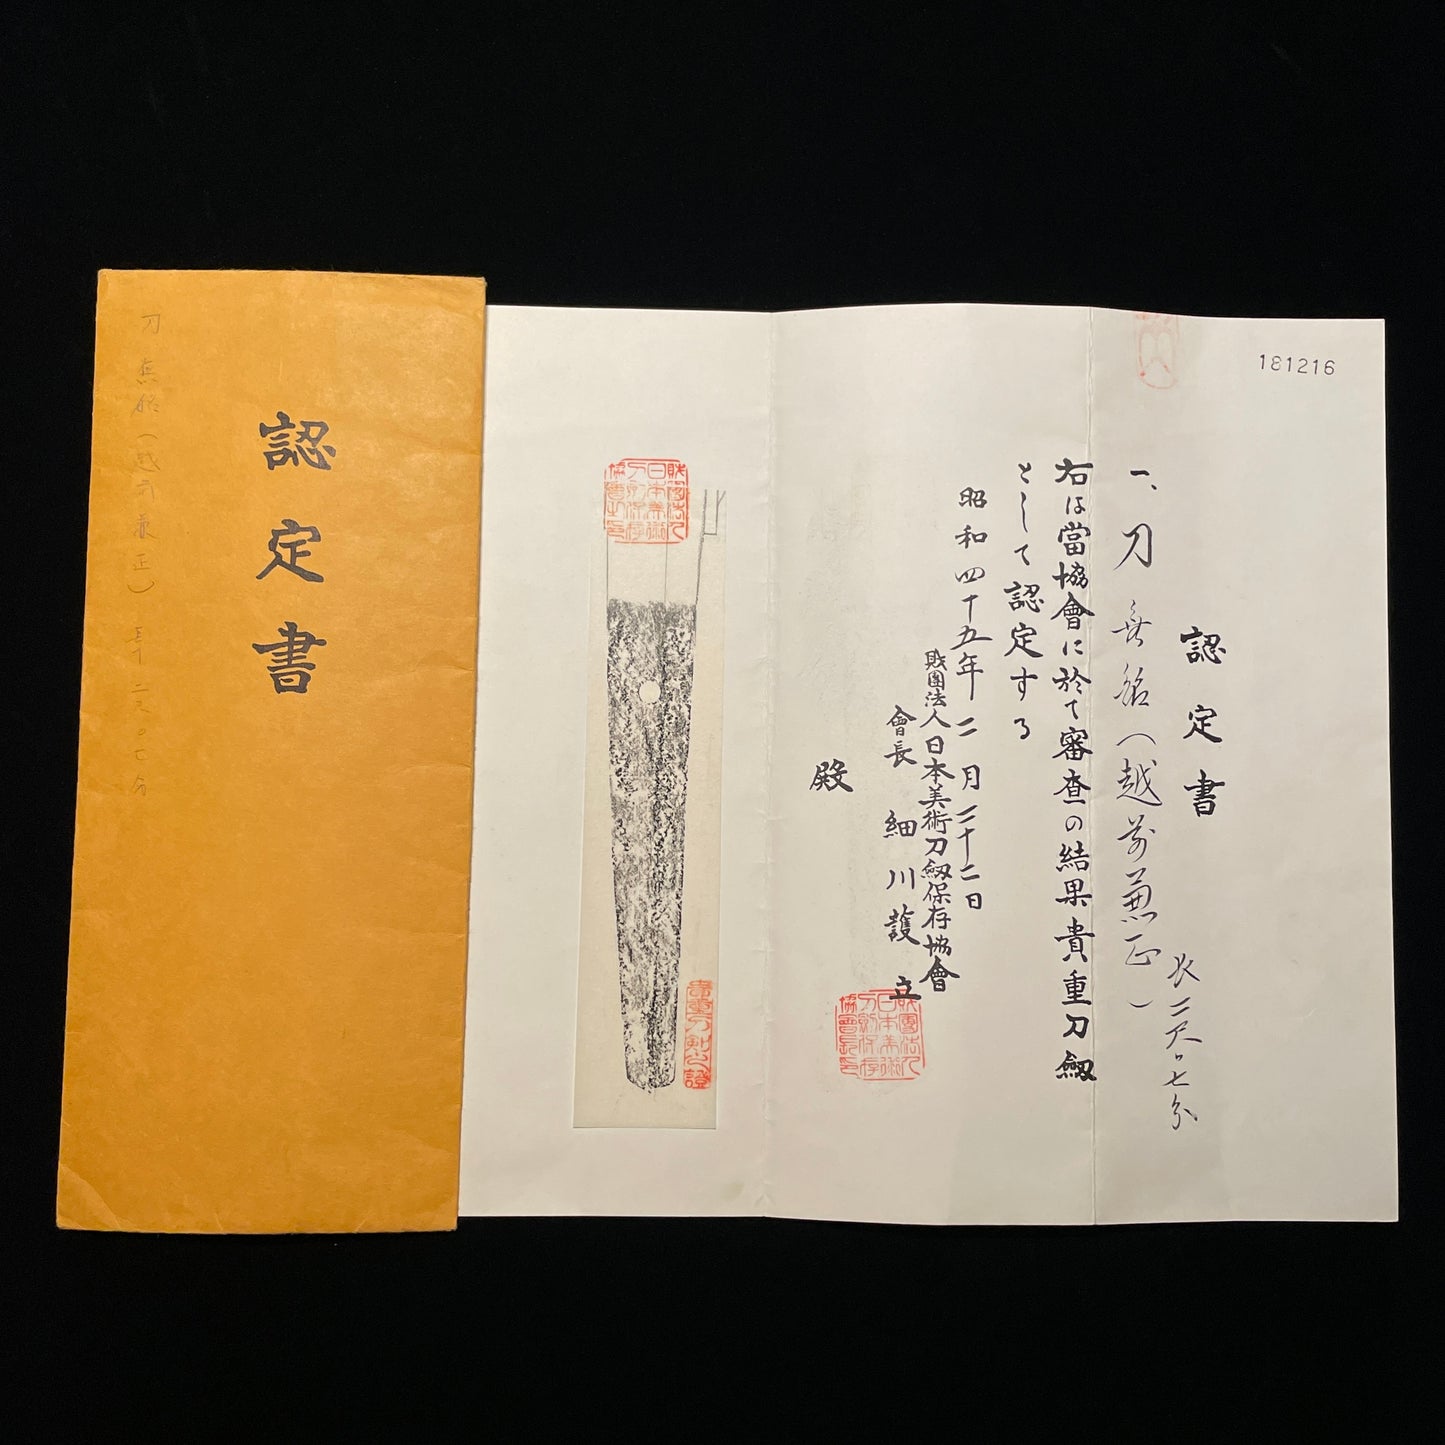 認定書
刀 無銘（越前兼正） 長二尺〇七分
181216
認定書
一、刀 無銘（越前兼正） 長二尺〇七分
右は當協會に於て審査の結果貴重刀劔
として認定する
昭和四十五年二月二十二日
財團法人日本美術刀劔保存協會
會長 細川護立
殿
財團法人
日本美術
刀劔保存
協會長印
財團法人
日本美術
刀劔保存
協會長印
貴重刀剣之證